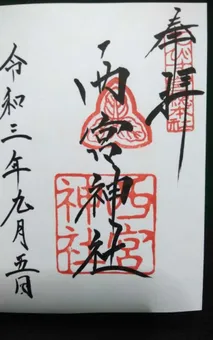 奉拝
西宮神社
西宮神社
令和三年九月五日